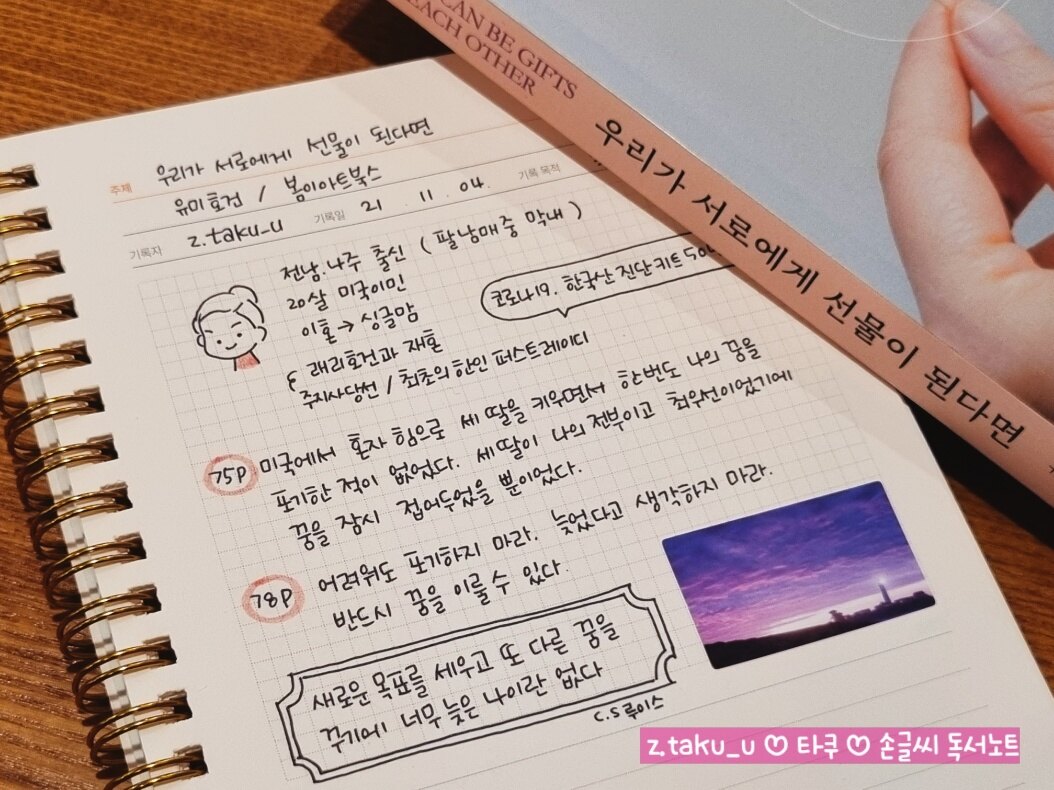 CAN BE GIFTS
EACH OTHER
우리가 서로에게 선물이 된다면
주제 우리가 서로에게 선물이 된다면
유미호건 / 봄이아트북스
기록자 z.taku_u 기록일 21 . 11 . 04. 기록 목적
전남.나주 출신 ( 팔남매 중 막내 )
20살 미국이민
이혼 → 싱글맘
래리호건과 재혼
주지사당선 / 최초의 한인 퍼스트레이디
코로나19. 한국산 진단키트 50
75P 미국에서 혼자 힘으로 세 딸을 키우면서 한번도 나의 꿈을
포기한 적이 없었다. 세 딸이 나의 전부이고 최우선이었기에
꿈을 잠시 접어두었을 뿐이었다.
78P 어려워도 포기하지 마라. 늦었다고 생각하지 마라.
반드시 꿈을 이룰 수 있다.
새로운 목표를 세우고 또 다른 꿈을
꾸기에 너무 늦은 나이란 없다
C.S 루이스
z.taku_u ♡ 타쿠 ♡ 손글씨 독서노트